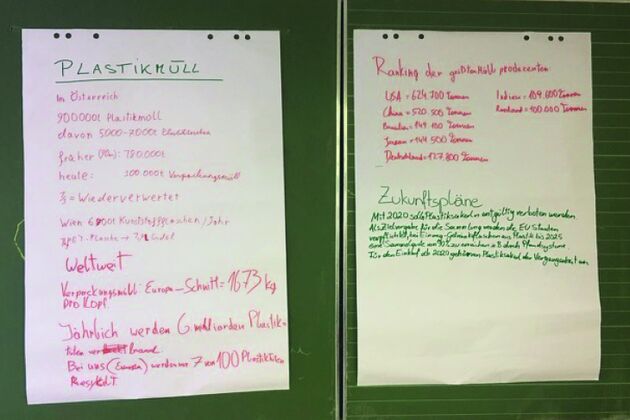 PLASTIKMÜLL
In Österreich:
900000t Plastikmüll
davon 5000-7000t
früher : 780.000t
heute: 300.000t Verpackungsmüll
= Wiederverwertet
Wien Kunststoffflaschen/Jahr
Flasche →
Weltweit
Verpackungsmüll: Europa-Schnitt = 1673 kg
pro Kopf.
Jährlich werden 6 milliarden Plastik-
tüten verbrannt.
Bei uns (Europa) werden nur 7 von 100 Plastiktüten
Recykelt
Ranking der größten Müll produzenten:
USA = 624.700 Tonnen
China = 520.500 Tonnen
Brasilien = 149.100 Tonnen
Japan = 144.500 Tonnen
Deutschland = 127.800 Tonnen
Indien = 109.600 Tonnen
Russland = 100.000 Tonnen
Zukunftspläne
Mit 2020 soll Plastiksackerln entgültig verboten werden.
Als Zielvorgabe für die Sammlung werden die EU Staaten
verpflichtet, bei Einweg-Getränkeflaschen aus Plastik bis 2025
eine Sammelquote von 90% zu erreichen z.B. durch Pfandsysteme
Für den Einkauf ab 2020 gehören Plastiksackerl der Vergangenheit an.